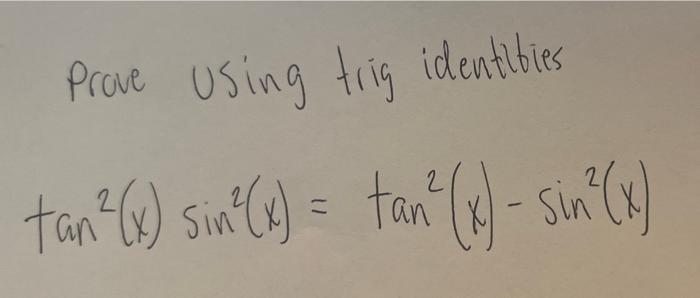 Prove using trig identitities
tan²(x) sin²(x) = tan²(x) - sin²(x)